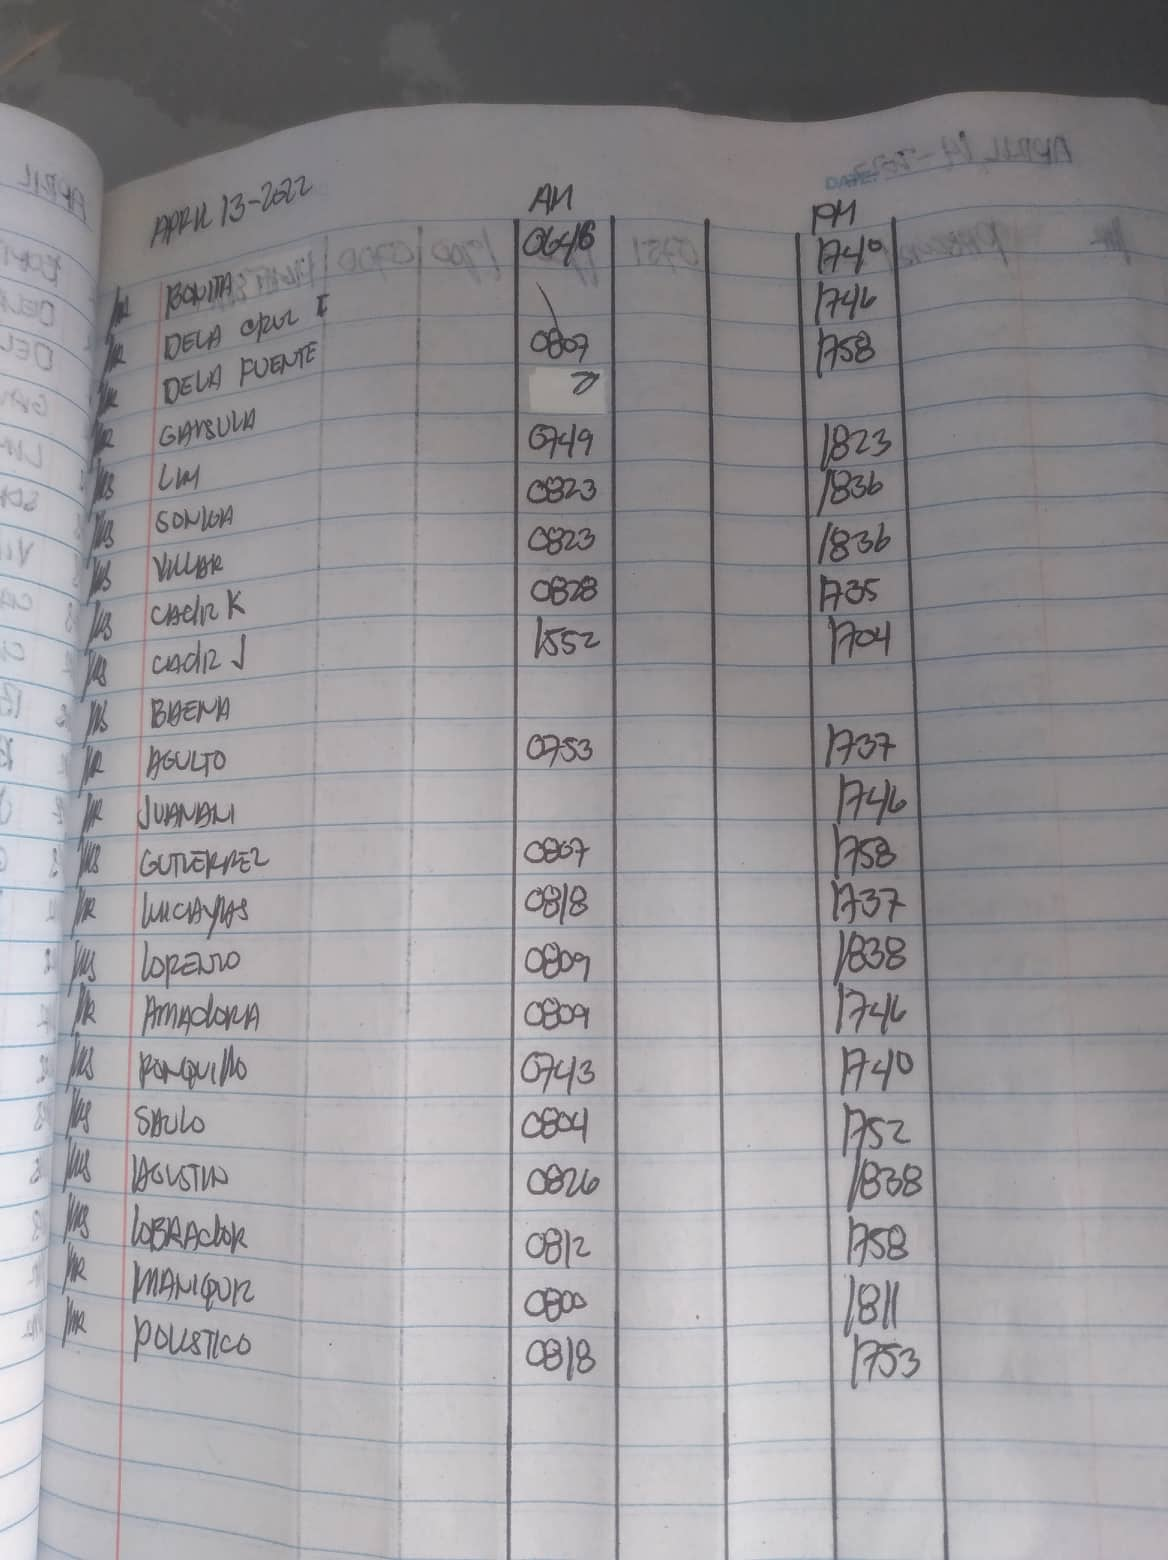 APRIL 13-2022 AM PM
MR BONITA 0646 1740
MR DELA CRUZ I 1746
MR DELA FUENTE 0807 1758
MR GAYSULA
MS LIM 0749 1823
MS SONIGA 0823 1836
MS VILLAR 0823 1836
MS CADIZ K 0828 1735
MS CADIZ J 1552 1704
MS BAENA
MR AGULTO 0753 1737
MR JUANANI 1746
MS GUTIERREZ 0807 1758
MR 0818 1737
MS LORENZO 0809 1838
MR AMADORA 0809 1746
MS RONQUILLO 0743 1740
MS SAULO 0804 1752
MS AGUSTIN 0826 1838
MS LOBRADOR 0812 1758
MR MANIQUIZ 0800 1811
MR POLISTICO 0818 1753